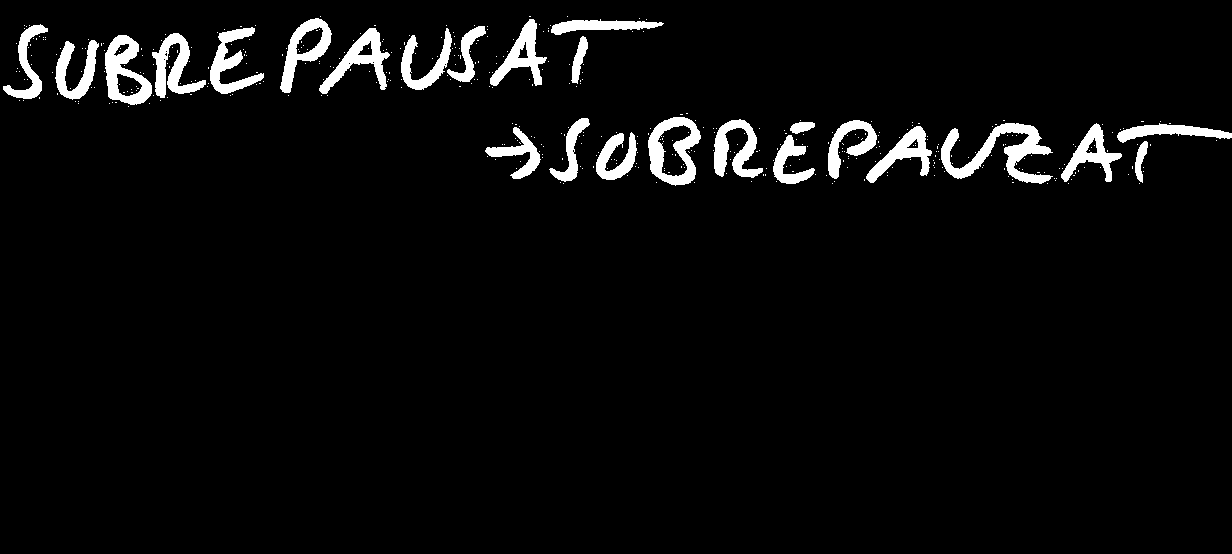 SUBREPAUSAT
→SOBREPAUZAT